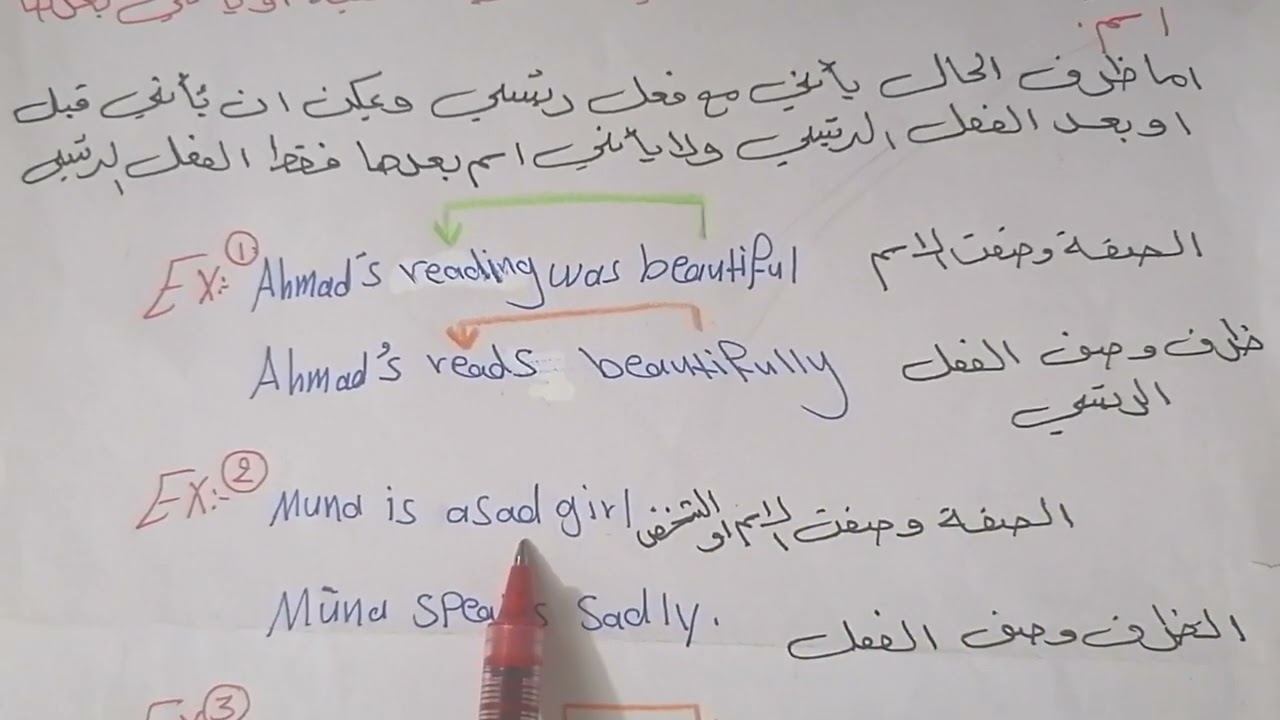 اسم.
اما ظرف الحال يأتي مع فعل رئيسي ويمكن ان يُأتي قبل
او بعد الفعل الرئيسي ولا يأتي اسم بعدها فقط الفعل الرئيسي
Ex:- ① Ahmad's reading was beautiful الصفة وصفت الاسم
Ahmad's reads beautifully ظرف وصف الفعل
الرئيسي
Ex:- ② Muna is a sad girl الصفة وصفت الاسم او الشخص
Muna speaks sadly. الظرف وصف الفعل
Ex ③